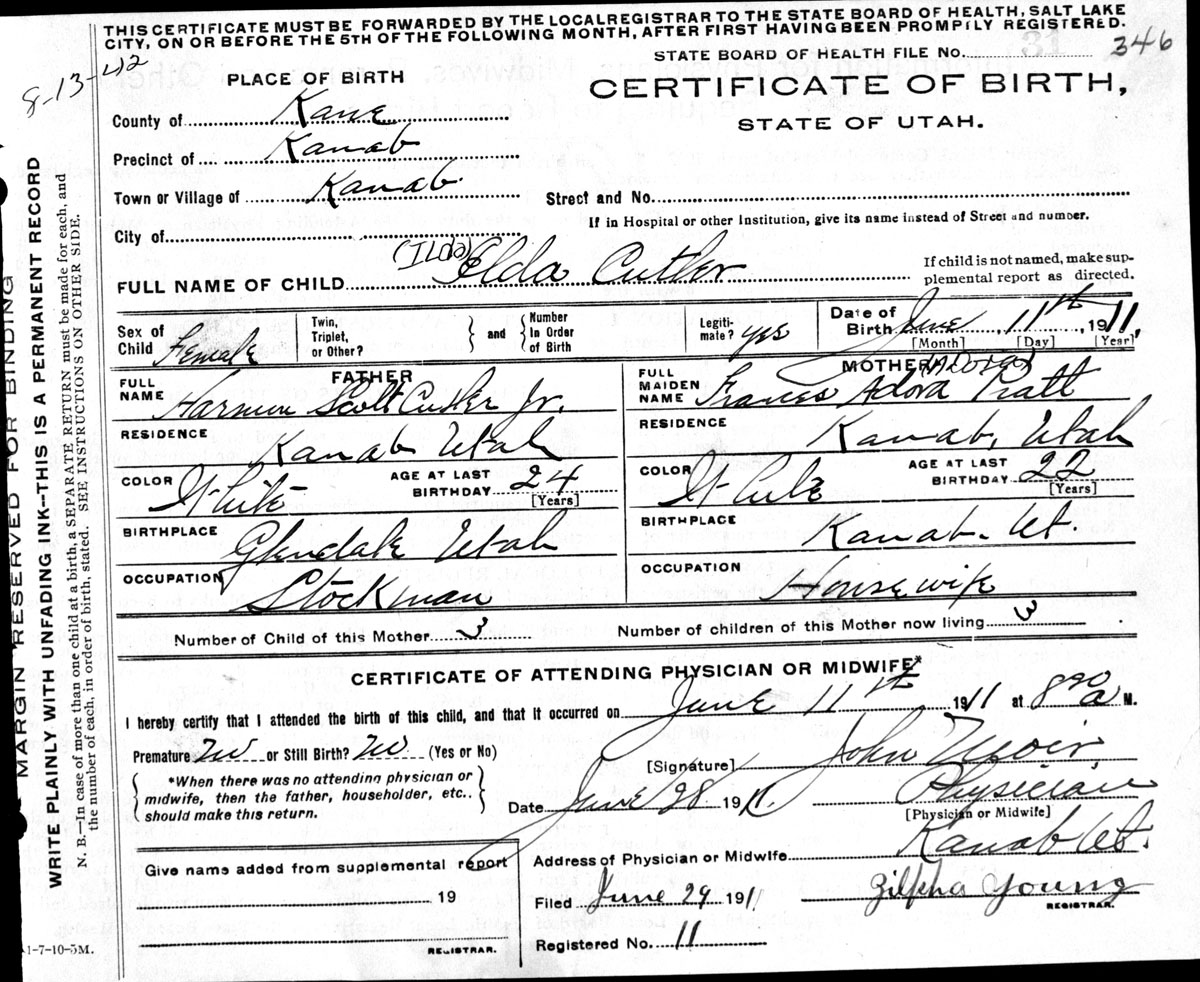 THIS CERTIFICATE MUST BE FORWARDED BY THE LOCAL REGISTRAR TO THE STATE BOARD OF HEALTH, SALT LAKE
CITY, ON OR BEFORE THE 5TH OF THE FOLLOWING MONTH, AFTER FIRST HAVING BEEN PROMPTLY REGISTERED.
STATE BOARD OF HEALTH FILE No. 346
8-13-42
PLACE OF BIRTH
CERTIFICATE OF BIRTH,
STATE OF UTAH.
County of Kane
Precinct of Kanab
Town or Village of Kanab. Street and No.
If in Hospital or other Institution, give its name instead of Street and number.
City of
(Ilda)
FULL NAME OF CHILD Elda Cutler
If child is not named, make sup-
plemental report as directed.
Sex of Child Female
Twin, Triplet, or Other?
and
Number In Order of Birth
Legiti-mate? yes
Date of Birth June 11th, 1911,
[Month] [Day] [Year]
FATHER
FULL NAME Harmon Scott Cutler Jr.
RESIDENCE Kanab Utah
COLOR White AGE AT LAST BIRTHDAY 24 [Years]
BIRTHPLACE Glendale Utah
OCCUPATION Stockman
MOTHER
FULL MAIDEN NAME Frances Adora Pratt
RESIDENCE Kanab, Utah
COLOR White AGE AT LAST BIRTHDAY 22 [Years]
BIRTHPLACE Kanab. Ut.
OCCUPATION Housewife
Number of Child of this Mother 3 Number of children of this Mother now living 3
CERTIFICATE OF ATTENDING PHYSICIAN OR MIDWIFE*
I hereby certify that I attended the birth of this child, and that it occurred on June 11th 1911 at 8 a M.
Premature No or Still Birth? No (Yes or No)
[Signature] John
*When there was no attending physician or
midwife, then the father, householder, etc.,
should make this return.
Date June 28 1911. Physician
[Physician or Midwife]
Address of Physician or Midwife Kanab Ut.
Give name added from supplemental report
19
REGISTRAR.
Filed June 29 1911 Zilpha Young
REGISTRAR.
Registered No. 11
1-7-10-5M.
MARGIN RESERVED FOR BINDING
WRITE PLAINLY WITH UNFADING INK--THIS IS A PERMANENT RECORD
N. B.—In case of more than one child at a birth, a SEPARATE RETURN must be made for each, and
the number of each, in order of birth, stated. SEE INSTRUCTIONS ON OTHER SIDE.